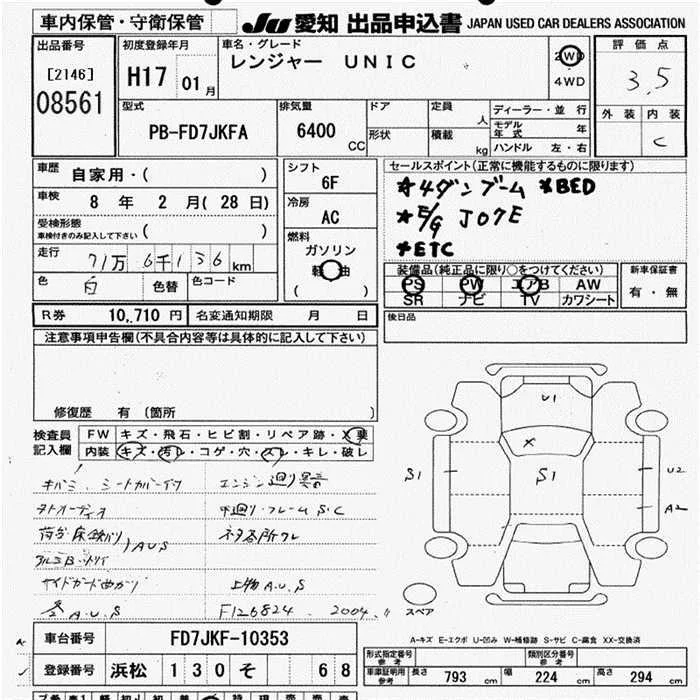 車内保管・守衛保管
JU 愛知 出品申込書 JAPAN USED CAR DEALERS ASSOCIATION
出品番号 [2146] 08561
初度登録年月 H17 01月
車名・グレード レンジャー UNIC
2WD 4WD
評価点 3.5
外装 内装 C
型式 PB-FD7JKFA
排気量 6400 CC
ドア 形状
定員 人 積載 kg
ディーラー・並行
モデル年式 年
ハンドル 左・右
車歴 自家用・( )
車検 8 年 2 月( 28 日)
受検形態 車検付きのみ記入して下さい ( )
走行 71万 6千136 km
色 白 色替 色コード
シフト 6F
冷房 AC
燃料 ガソリン 軽油 ( )
セールスポイント(正常に機能するものに限ります)
★4ダンブーム ★BED
★E/G J07E
★ETC
装備品(純正品に限り○をつけてください)
PS PW エアB AW
SR ナビ TV カワシート
新車保証書 有・無
R券 10,710 円 名変通知期限 月 日
後日品
注意事項申告欄(不具合内容等は具体的に記入して下さい)
修復歴 有 〔箇所 〕
検査員記入欄
FW キズ・飛石・ヒビ割・リペア跡・X要
内装 キズ・汚レ・コゲ・穴・スレ・キレ・破レ
キバミ、シートカバー
エンジン廻り
下廻り・フレーム S.C
A.U.S
サイドガード
上物 A.U.S
A.U.S
F126824 2004.
U1
X
S1
S1
U2
A2
スペア
A-キズ E-エクボ U-凹み W-補修跡 S-サビ C-腐食 XX-交換済
車台番号 FD7JKF-10353
登録番号 浜松 130 そ 68
型式指定番号 参考
類別区分番号 参考
車庫証明用 参考 長さ 793 幅 224 高さ 294